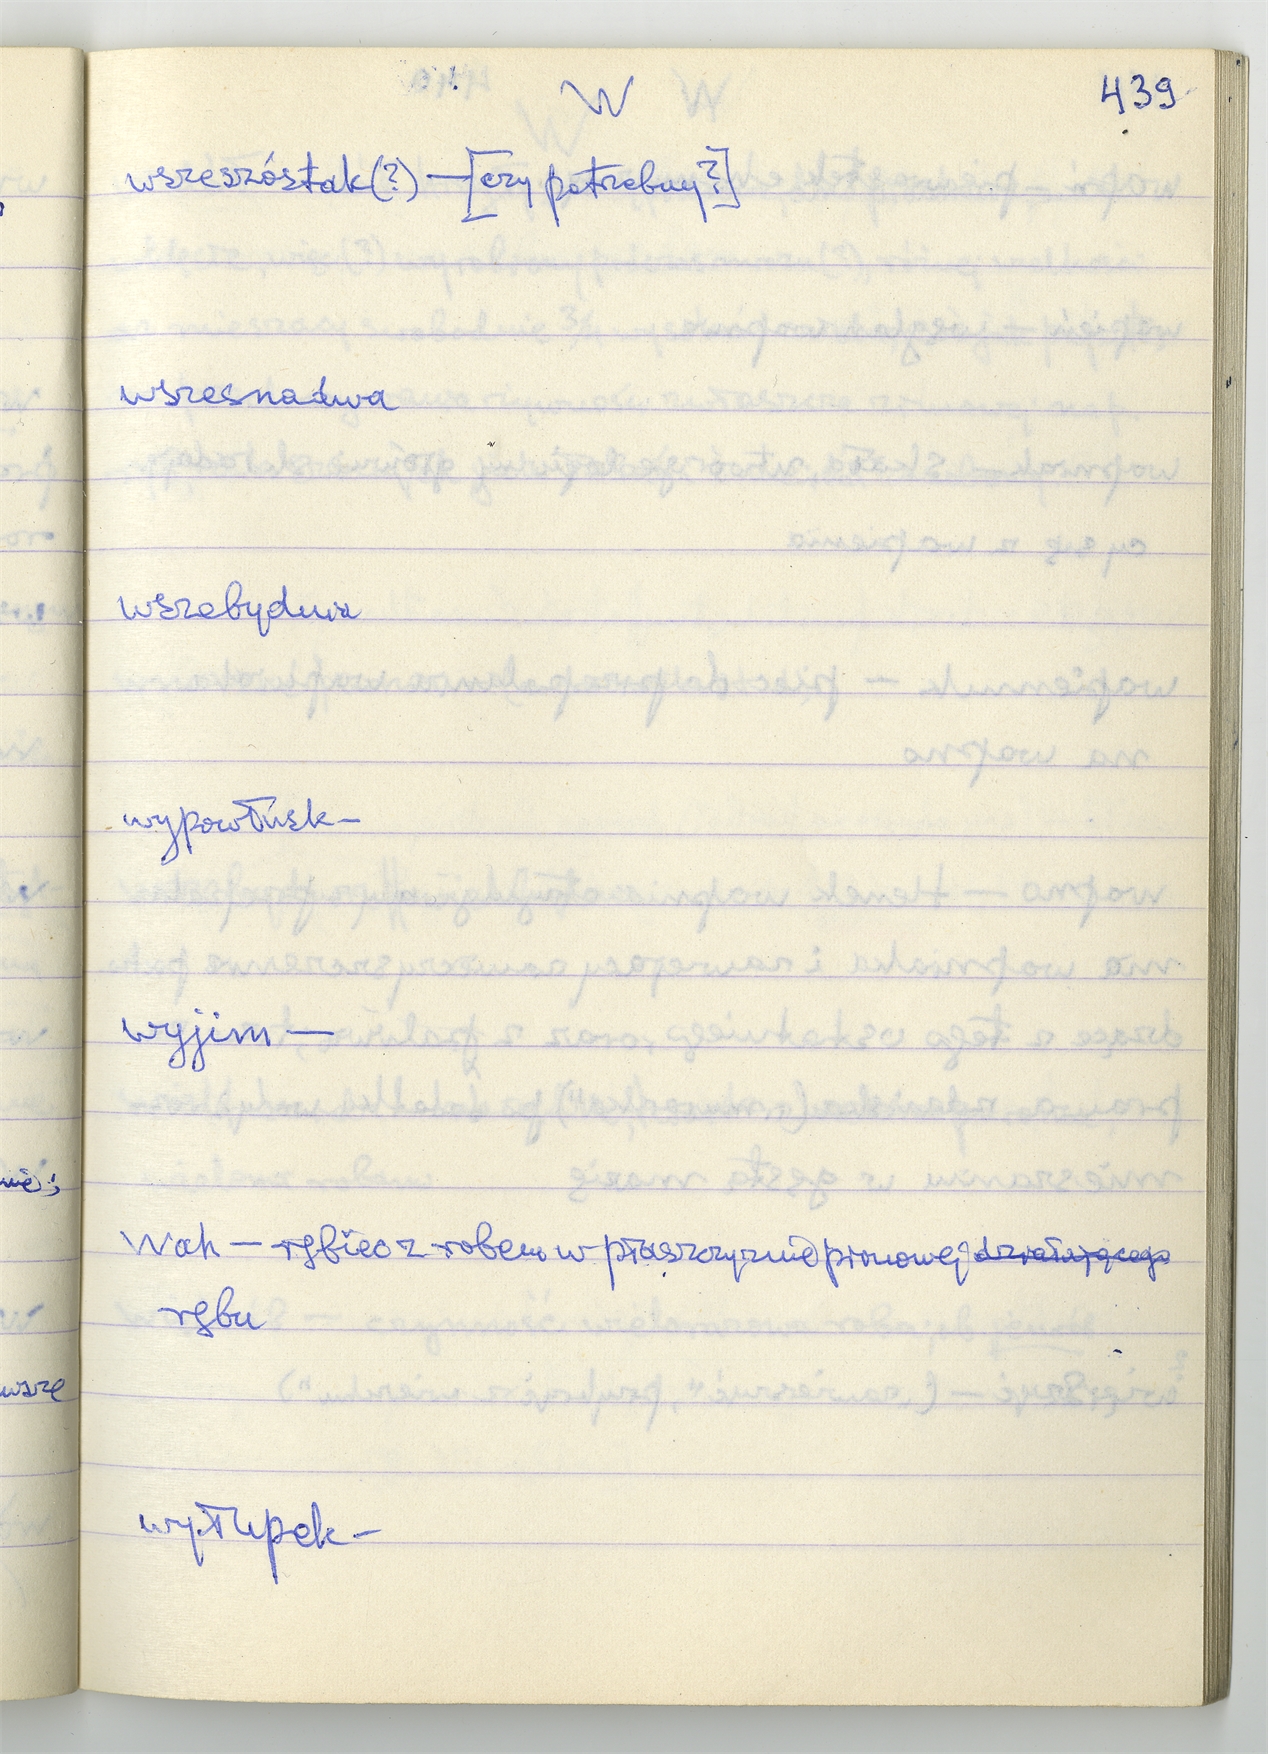 W 439
wszeszóstak (?) — [czy potrzebny?]
wszesnadwa
wszebydwa
wypowłúsk —
wyjim —
Wah — rgbiec z robem w płaszczyznie pionowej działającego
rgbu
wytłupek —
nie;
wszę